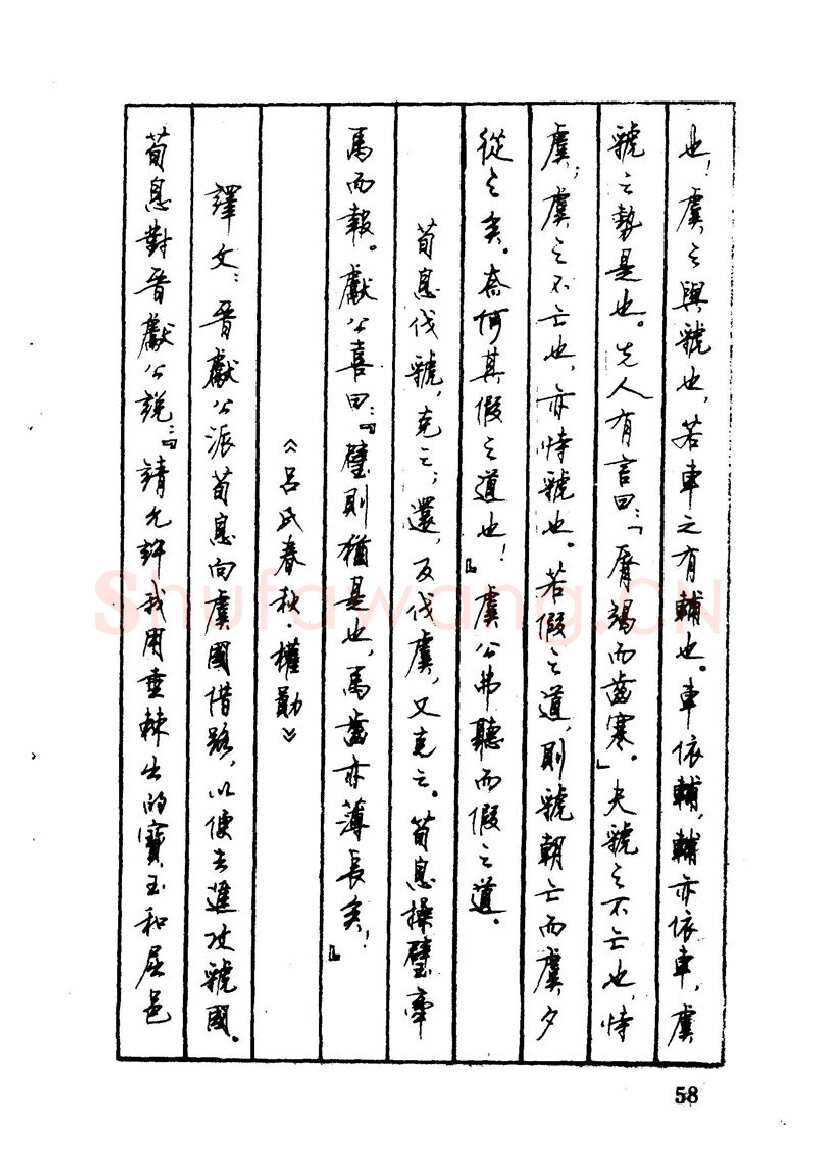 也！虞之與虢也，若車之有輔也。車依輔，輔亦依車，虞
虢之勢是也。先人有言曰：「脣竭而齒寒」。夫虢之不亡也，恃
虞；虞之不亡也，亦恃虢也。若假之道，則虢朝亡而虞夕
從之矣。奈何其假之道也！』虞公弗聽而假之道。
荀息伐虢，克之；還，反伐虞，又克之。荀息操璧牽
馬而報。獻公喜曰：『璧則猶是也，馬齒亦薄長矣！』
《呂氏春秋·權勳》
譯文：晋獻公派荀息向虞國借路，以便去進攻虢國。
荀息對晋獻公説：『請允許我用垂棘出的寶玉和屈邑
58
Shufawang.CN